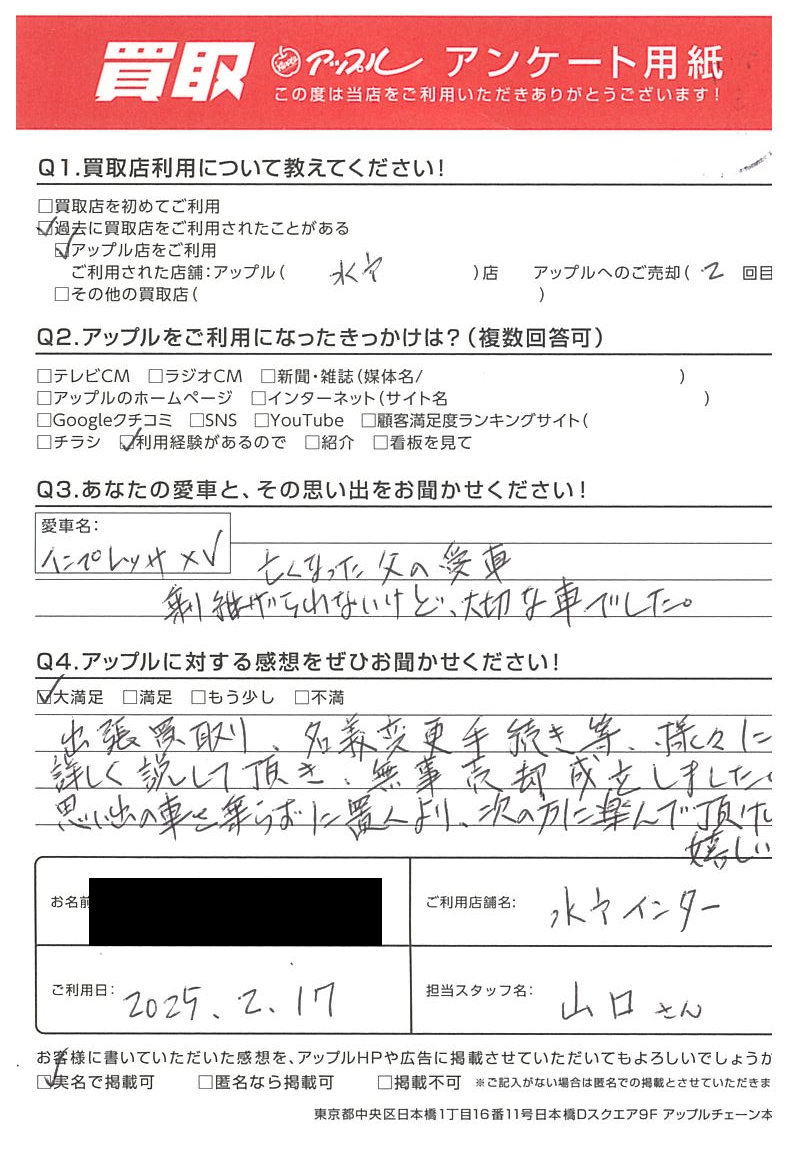 買取 アップル アンケート用紙
この度は当店をご利用いただきありがとうございます!
Q1.買取店利用について教えてください!
□買取店を初めてご利用
☑過去に買取店をご利用されたことがある
☑アップル店をご利用
ご利用された店舗:アップル( 水戸 )店 アップルへのご売却( 2 回目
□その他の買取店( )
Q2.アップルをご利用になったきっかけは?(複数回答可)
□テレビCM □ラジオCM □新聞・雑誌(媒体名/ )
□アップルのホームページ □インターネット(サイト名 )
□Googleクチコミ □SNS □YouTube □顧客満足度ランキングサイト(
□チラシ ☑利用経験があるので □紹介 □看板を見て
Q3.あなたの愛車と、その思い出をお聞かせください!
愛車名:
インプレッサXV 亡くなった父の愛車
乗り継げられないけど、大切な車でした。
Q4.アップルに対する感想をぜひお聞かせください!
☑大満足 □満足 □もう少し □不満
出張買取り、名義変更手続き等、様々に
詳しく説して頂き、無事売却成立しました。
思い出の車を乗らずに置くより、次の方に楽んで頂けし
嬉しい
お名前
ご利用店舗名: 水戸インター
ご利用日: 2025.2.17
担当スタッフ名: 山口さん
お客様に書いていただいた感想を、アップルHPや広告に掲載させていただいてもよろしいでしょうか
☑実名で掲載可 □匿名なら掲載可 □掲載不可 ※ご記入がない場合は匿名での掲載とさせていただきま
東京都中央区日本橋1丁目16番11号日本橋Dスクエア9F アップルチェーン本